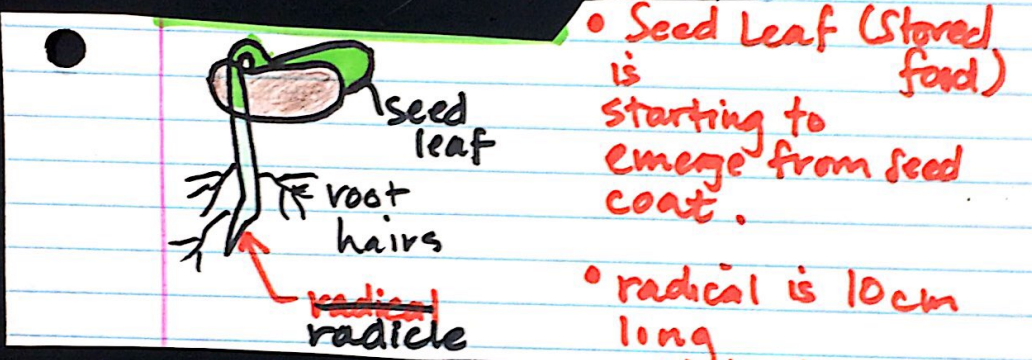 seed
leaf
root
hairs
radical
radicle
• Seed Leaf (Stored
is food)
starting to
emerge from seed
coat.
• radical is 10 cm
long